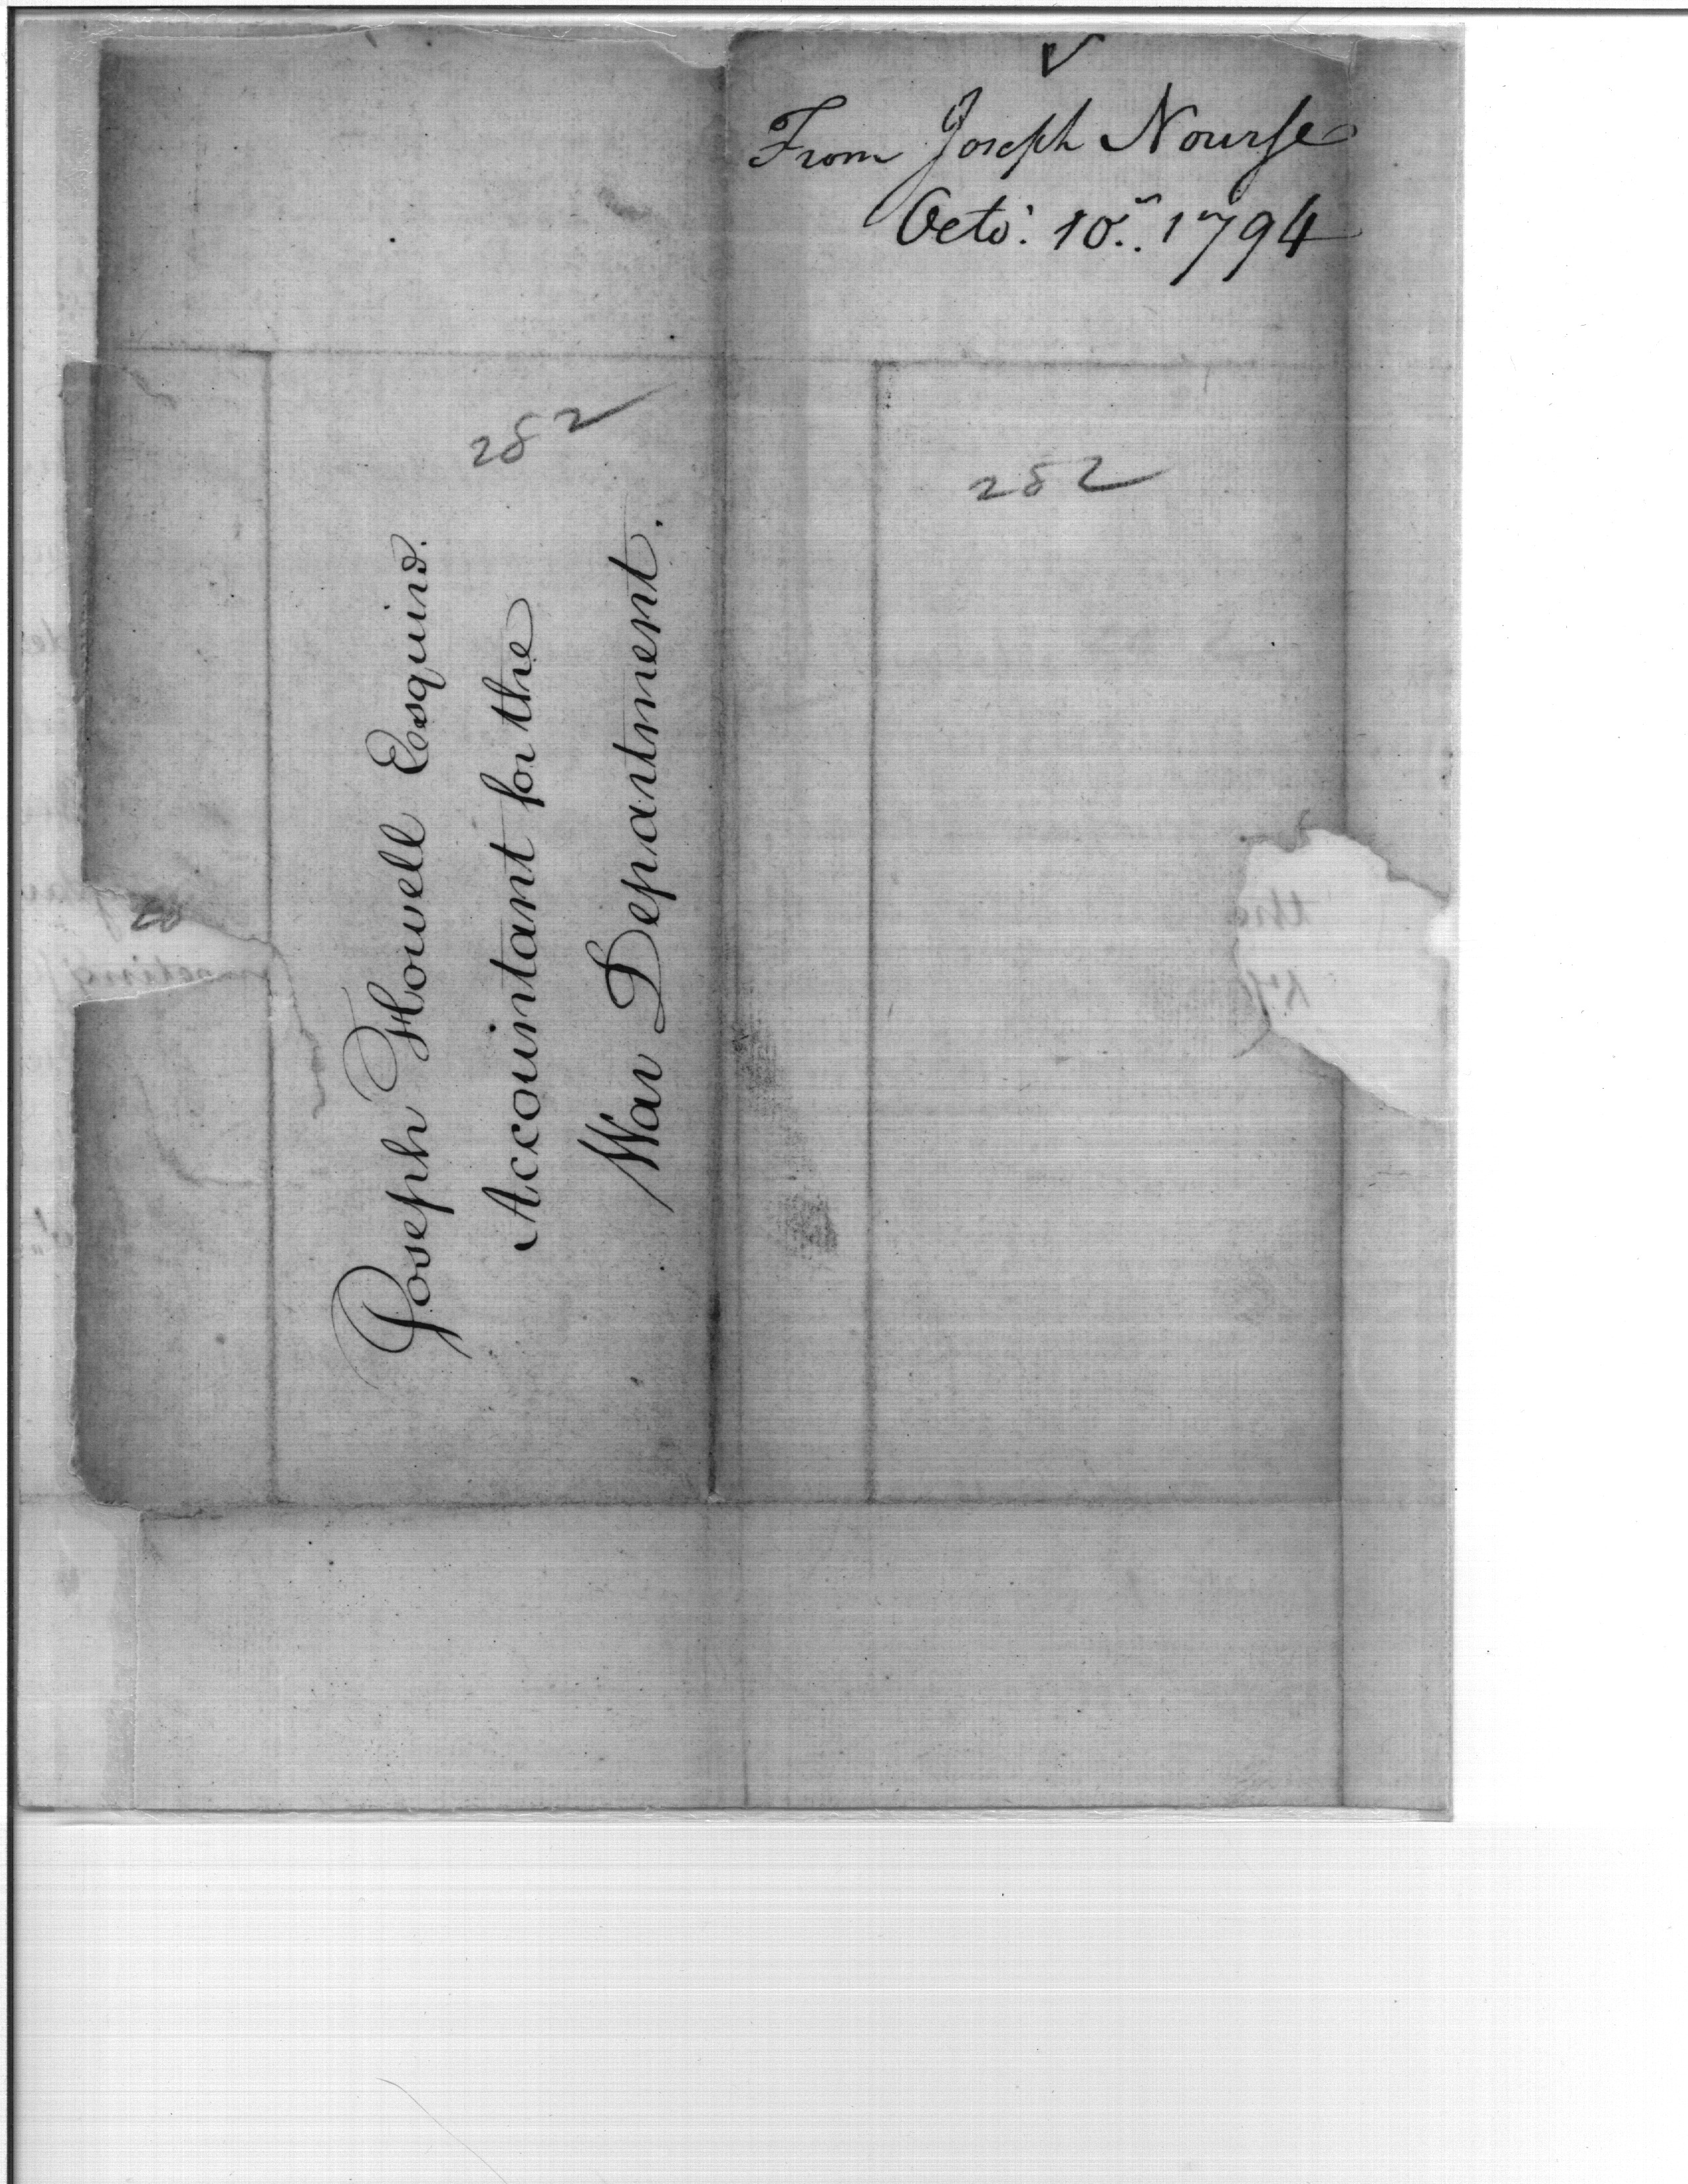 From Joseph Nourse
Octo: 10th 1794
282
282
Joseph Howell Esquire.
Accountant for the
War Department.